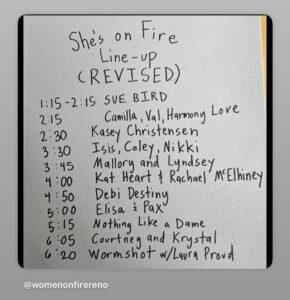 She's on Fire
Line-up
(REVISED)
1:15-2:15 SUE BIRD
2:15 Camilla, Val, Harmony Love
2:30 Kasey Christensen
3:30 Isis, Coley, Nikki
3:45 Mallory and Lyndsey
4:00 Kat Heart & Rachael McElhiney
4:50 Debi Destiny
5:00 Elisa & Pax
5:15 Nothing Like a Dame
6:05 Courtney and Krystal
6:20 Wormshot w/Laura Proud
@womenonfirereno